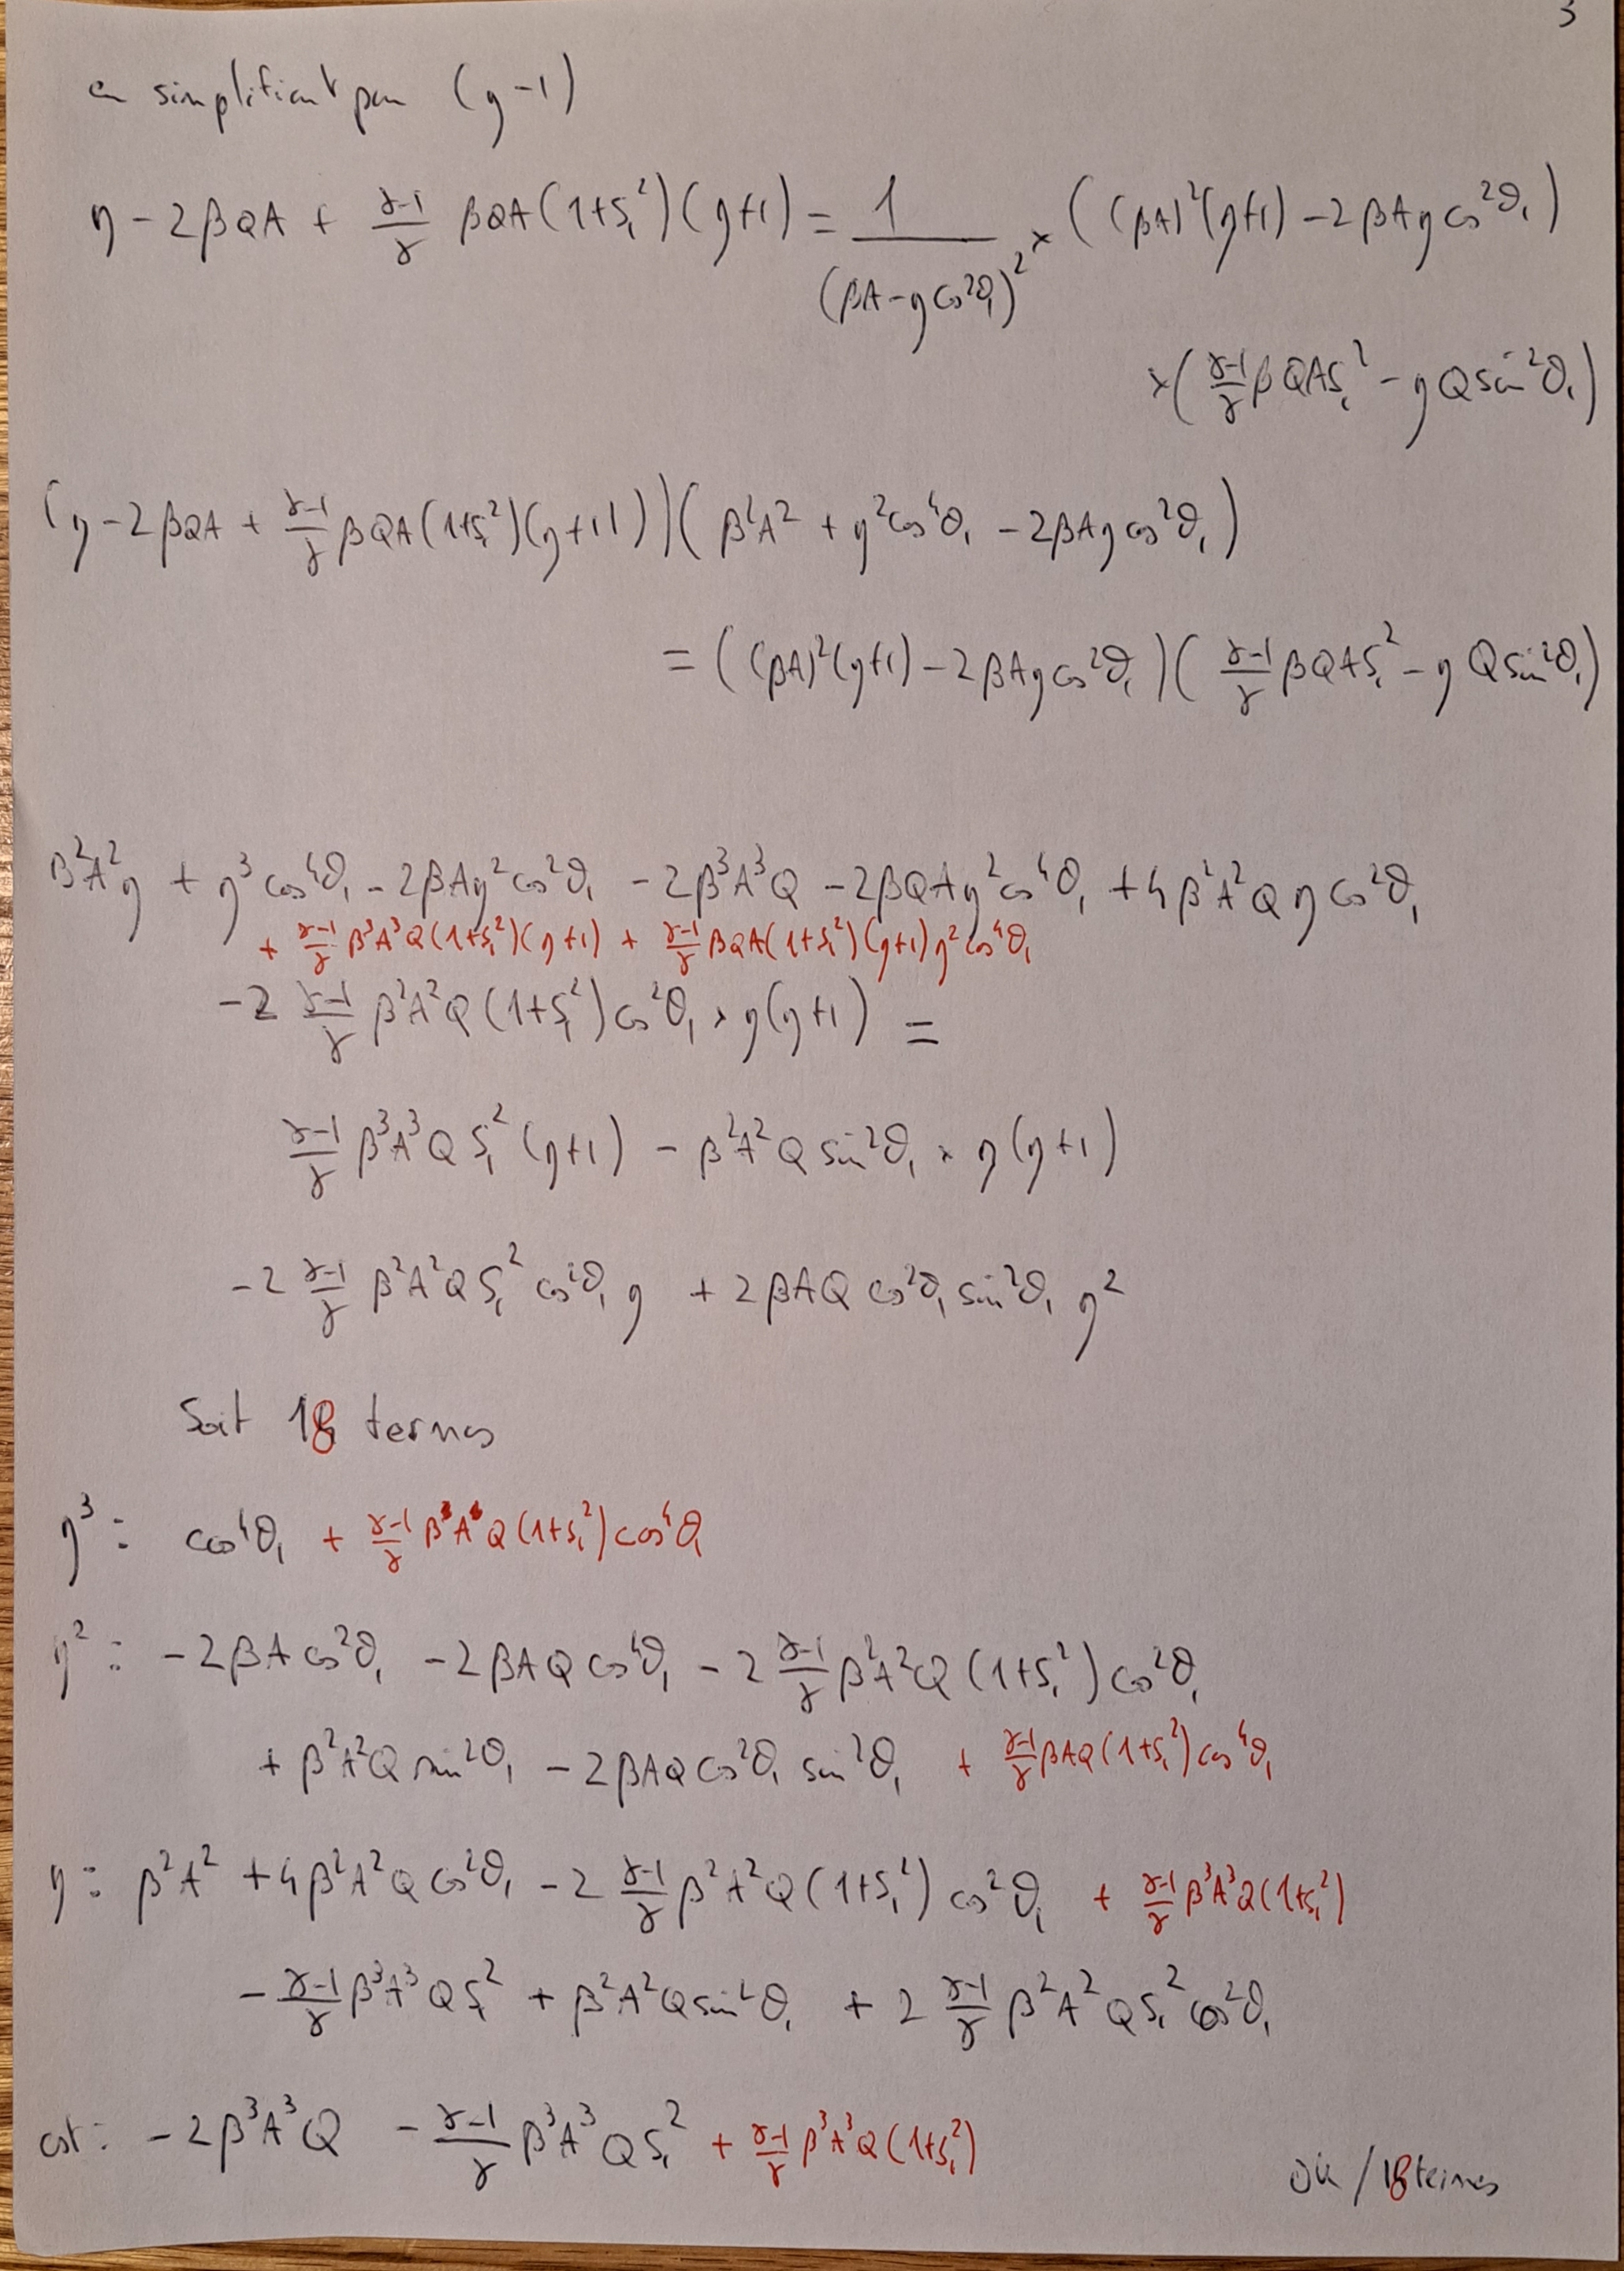 3
en simplifiant par (η-1)
η - 2βQA + (γ-1)/γ βQA(1+S₁²)(η+1) = 1/(βA-ηcos²θ₁)² × ((βA)²(η+1) - 2βAηcos²θ₁)
×((γ-1)/γ βQAS₁² - ηQsin²θ₁)
(η-2βQA + (γ-1)/γ βQA(1+S₁²)(η+1))(β²A² + η²cos⁴θ₁ - 2βAηcos²θ₁)
= ((βA)²(η+1) - 2βAηcos²θ₁)((γ-1)/γ βQAS₁² - ηQsin²θ₁)
β²A²η + η³cos⁴θ₁ - 2βAη²cos²θ₁ - 2β³A³Q - 2βQAη²cos⁴θ₁ + 4β²A²Qηcos²θ₁
+ (γ-1)/γ β³A³Q(1+S₁²)(η+1) + (γ-1)/γ βQA(1+S₁²)(η+1)η²cos⁴θ₁
-2 (γ-1)/γ β²A²Q(1+S₁²)cos²θ₁ × η(η+1) =
(γ-1)/γ β³A³QS₁²(η+1) - β²A²Qsin²θ₁ × η(η+1)
-2 (γ-1)/γ β²A²QS₁²cos²θ₁η + 2βAQcos²θ₁sin²θ₁η²
Soit 18 termes
η³ : cos⁴θ₁ + (γ-1)/γ βAQ(1+S₁²)cos⁴θ₁
η² : -2βAcos²θ₁ - 2βAQcos⁴θ₁ - 2 (γ-1)/γ β²A²Q(1+S₁²)cos²θ₁
+ β²A²Qsin²θ₁ - 2βAQcos²θ₁sin²θ₁ + (γ-1)/γ βAQ(1+S₁²)cos⁴θ₁
η : β²A² + 4β²A²Qcos²θ₁ - 2 (γ-1)/γ β²A²Q(1+S₁²)cos²θ₁ + (γ-1)/γ β³A³Q(1+S₁²)
- (γ-1)/γ β³A³QS₁² + β²A²Qsin²θ₁ + 2 (γ-1)/γ β²A²QS₁²cos²θ₁
cst : -2β³A³Q - (γ-1)/γ β³A³QS₁² + (γ-1)/γ β³A³Q(1+S₁²)
OK / 18 termes